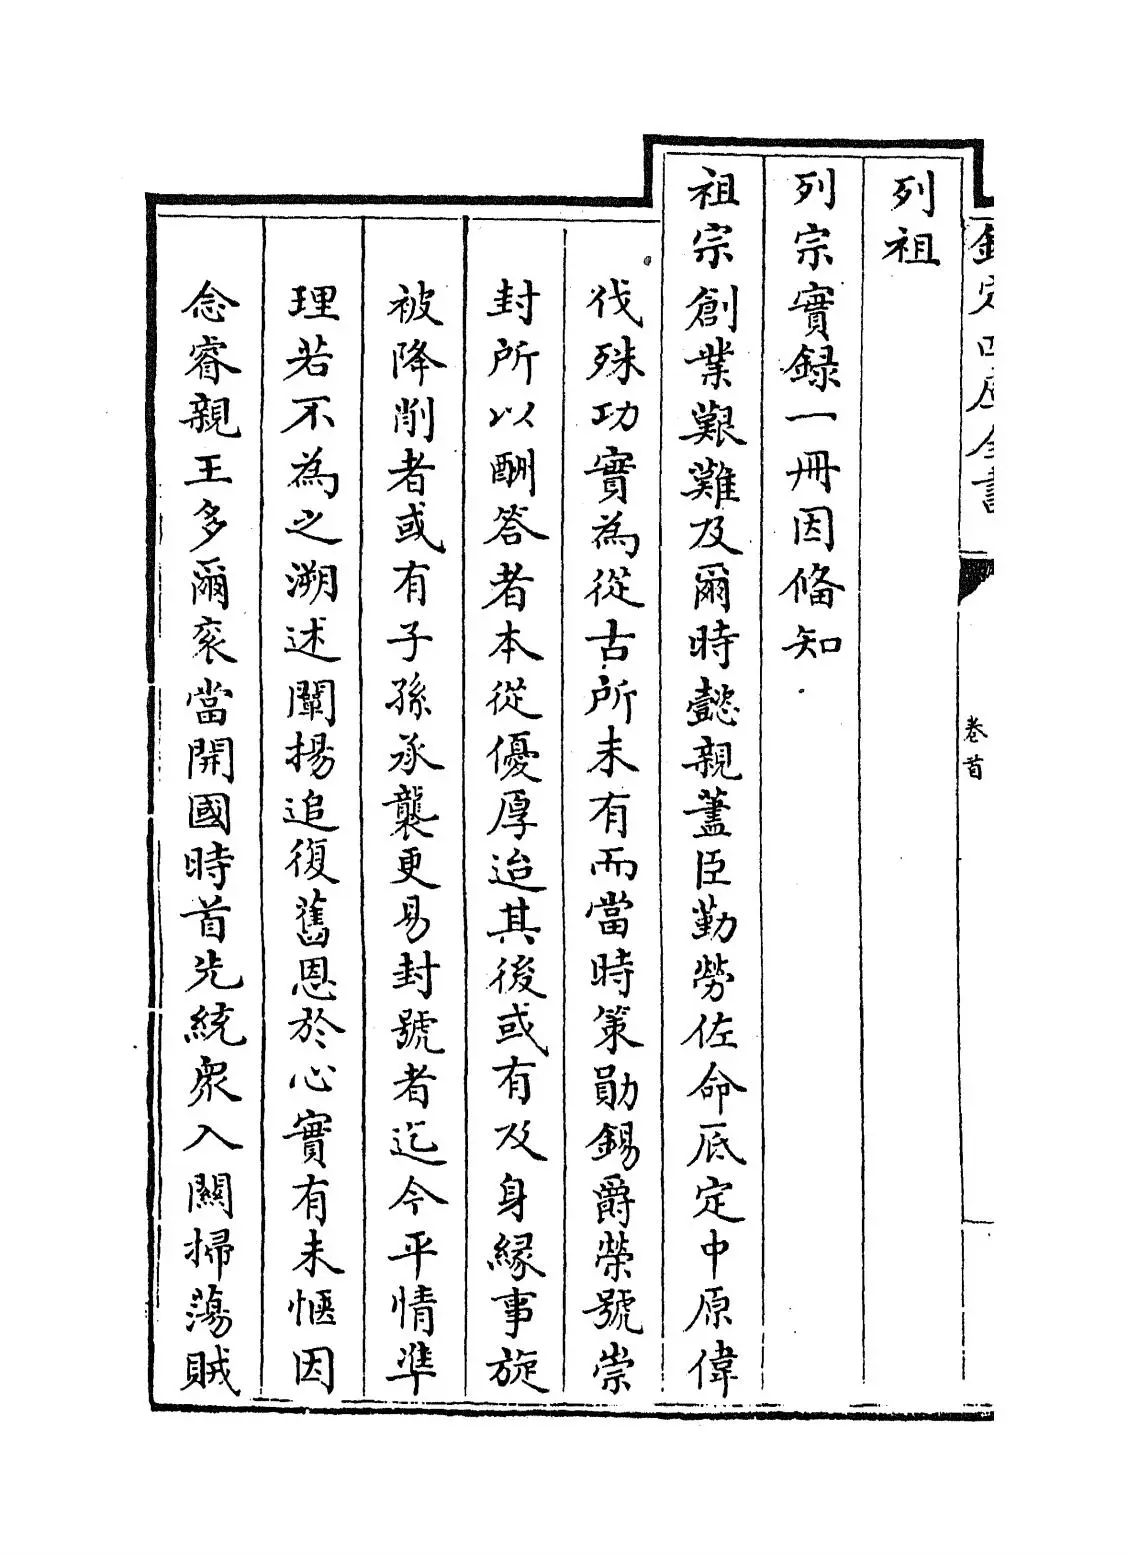 欽定四庫全書
卷首
列祖
列宗實録一冊因俻知
祖宗創業艱難及爾時懿親藎臣勤勞佐命底定中原偉
伐殊功實為從古所未有而當時策勛錫爵榮號崇
封所以酬答者本從優厚迨其後或有及身緣事旋
被降削者或有子孫承襲更易封號者迄今平情凖
理若不為之溯述闡揚追復舊恩於心實有未愜因
念睿親王多爾衮當開國時首先統衆入關掃蕩賊